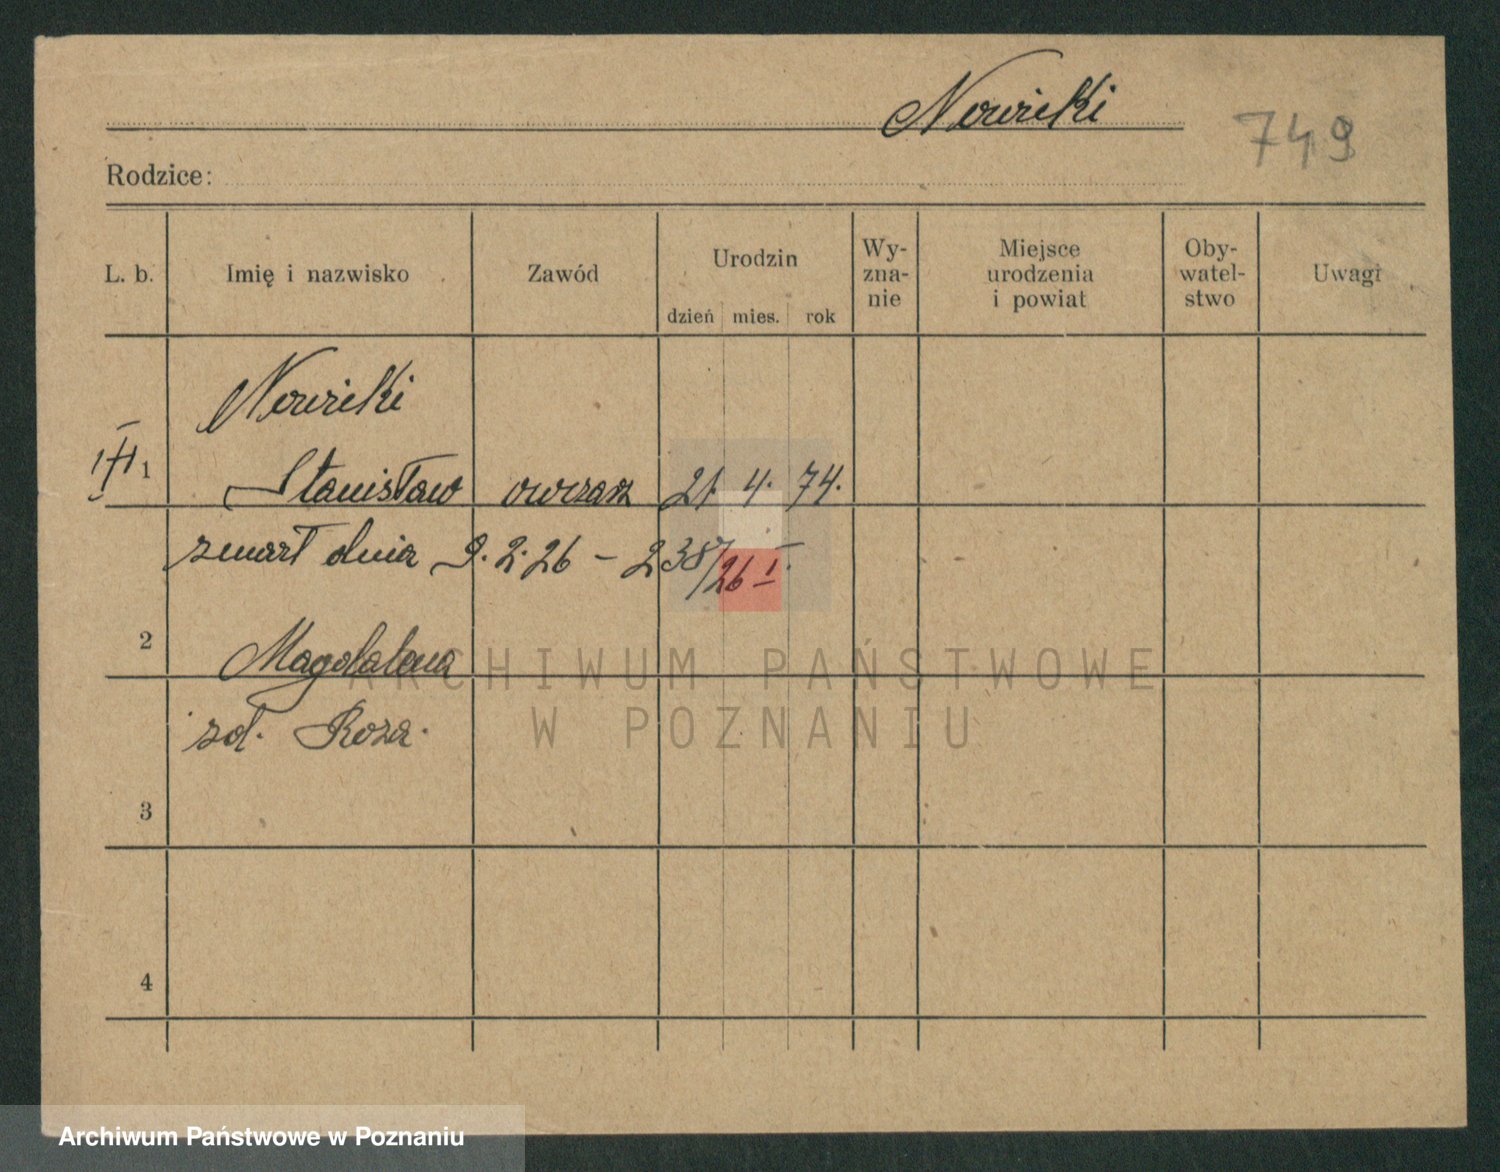 Nowicki
749
Rodzice:
L. b. Imię i nazwisko Zawód Urodzin dzień mies. rok Wy-zna-nie Miejsce urodzenia i powiat Oby-watel-stwo Uwagi
Nowicki
1 Stanisław owczarz 21. 4. 74.
zmarł dnia 9. 2. 26 – 238/26 I.
2 Magdalena
zd. Roza.
3
4
ARCHIWUM PAŃSTWOWE
W POZNANIU
Archiwum Państwowe w Poznaniu